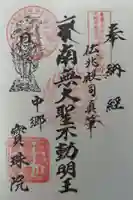 奉納経
佐兆殿司真筆
南無大聖不動明王
中郷
寳珠院